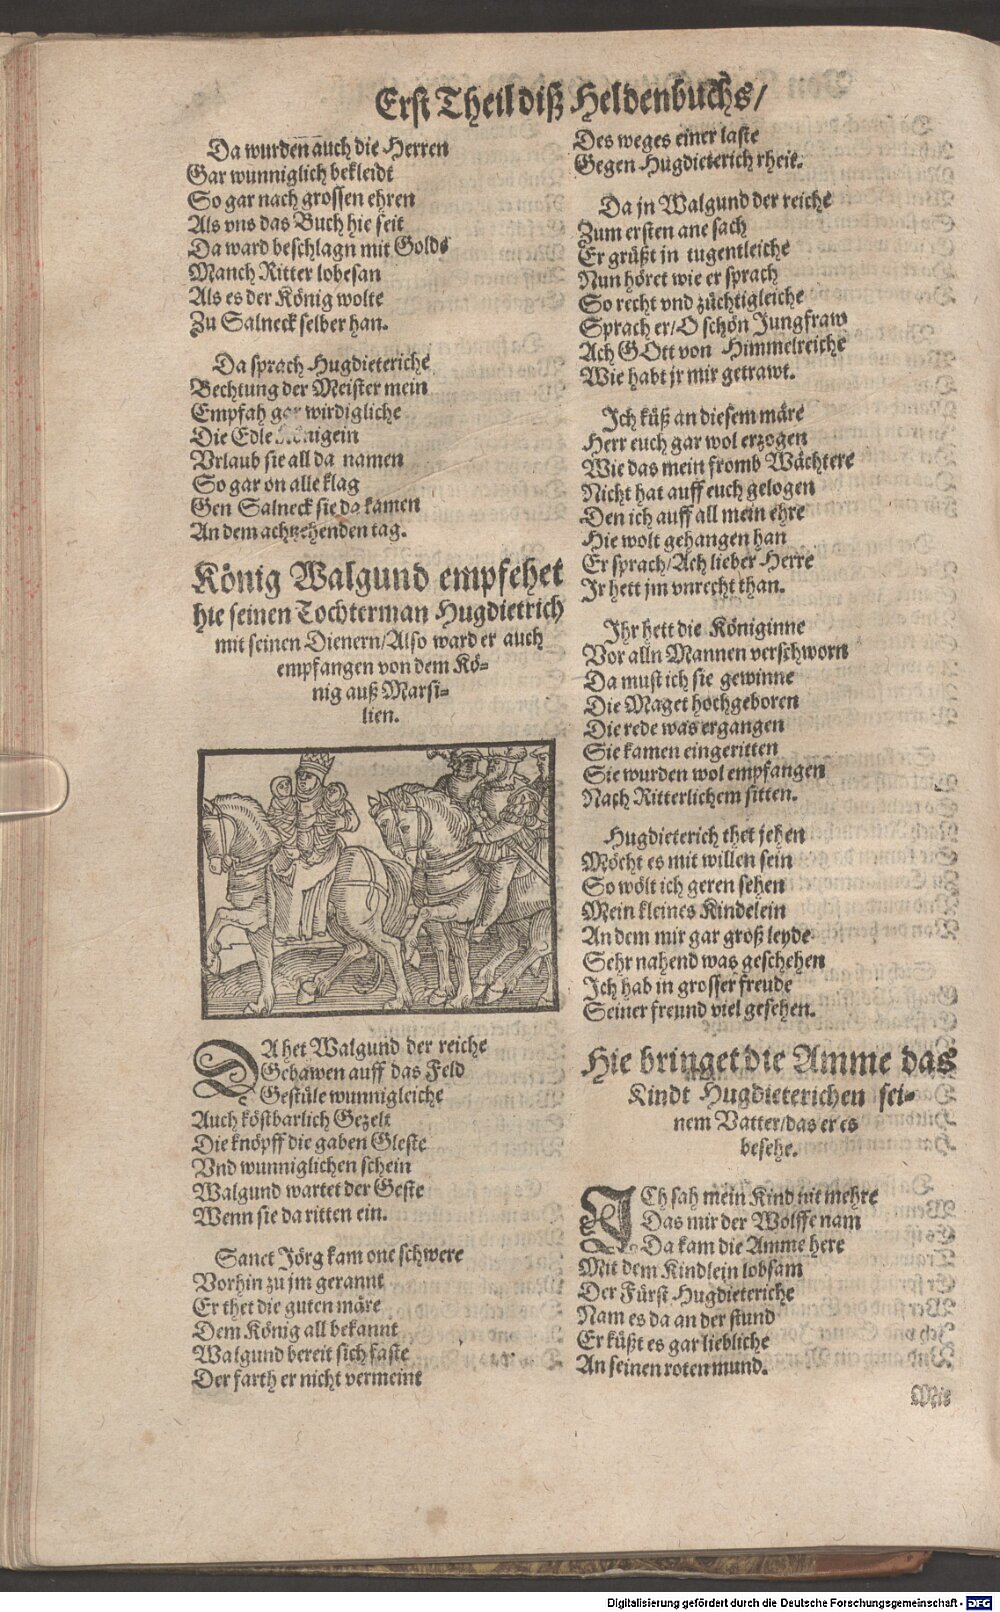 Erst Theil diß Heldenbuchs/
Da wurden auch die Herren
Gar wunniglich bekleidt
So gar nach grossen ehren
Als vns das Buch hie seit
Da ward beschlagn mit Golds
Manch Ritter lobesan
Als es der König wolte
Zu Salneck selber han.
Da sprach Hugdieteriche
Bechtung der Meister mein
Empfah gar wirdigliche
Die Edle Königein
Vrlaub sie all da namen
So gar on alle klag
Gen Salneck sie da kamen
An dem achtzehenden tag.
König Walgund empfehet
hie seinen Tochterman Hugdietrich
mit seinen Dienern/Also ward er auch
empfangen von dem Kö-
nig auß Marsi-
lien.
DA het Walgund der reiche
Gehawen auff das Feld
Gestüle wunnigleiche
Auch köstbarlich Gezelt
Die knöpff die gaben Gleste
Vnd wunniglichen schein
Walgund wartet der Geste
Wenn sie da ritten ein.
Sanct Jörg kam one schwere
Vorhin zu jm gerannt
Er thet die guten märe
Dem König all bekannt
Walgund bereit sich faste
Der farth er nicht vermeint
Des weges einer laste
Gegen Hugdieterich rheit.
Da jn Walgund der reiche
Zum ersten ane sach
Er grüßt in tugentleiche
Nun höret wie er sprach
So recht vnd züchtigleiche
Sprach er/O schön Jungfraw
Ach GOtt von Himmelreiche
Wie habt jr mir getrawt.
Ich küß an diesem märe
Herr euch gar wol erzogen
Wie das mein fromb Wächtere
Nicht hat auff euch gelogen
Den ich auff all mein ehre
Hie wolt gehangen han
Er sprach/Ach lieber Herre
Ir hett jm vnrecht than.
Ihr hett die Königinne
Vor alln Mannen verschworn
Da must ich sie gewinne
Die Maget hochgeboren
Die rede was ergangen
Sie kamen eingeritten
Sie wurden wol empfangen
Nach Ritterlichem sitten.
Hugdieterich thet jehen
Möcht es mit willen sein
So wölt ich geren sehen
Mein kleines Kindelein
An dem mir gar groß leyde
Sehr nahend was geschehen
Ich hab in grosser freude
Seiner freund viel gesehen.
Hie bringet die Amme das
Kindt Hugdieterichen sei-
nem Vatter/das er es
besehe.
ICh sah mein Kind nit mehre
Das mir der Wolffe nam
Da kam die Amme here
Mit dem Kindlein lobsam
Der Fürst Hugdieteriche
Nam es da an der stund
Er küßt es gar liebliche
An seinen roten mund.
Mit
Digitalisierung gefördert durch die Deutsche Forschungsgemeinschaft - DFG